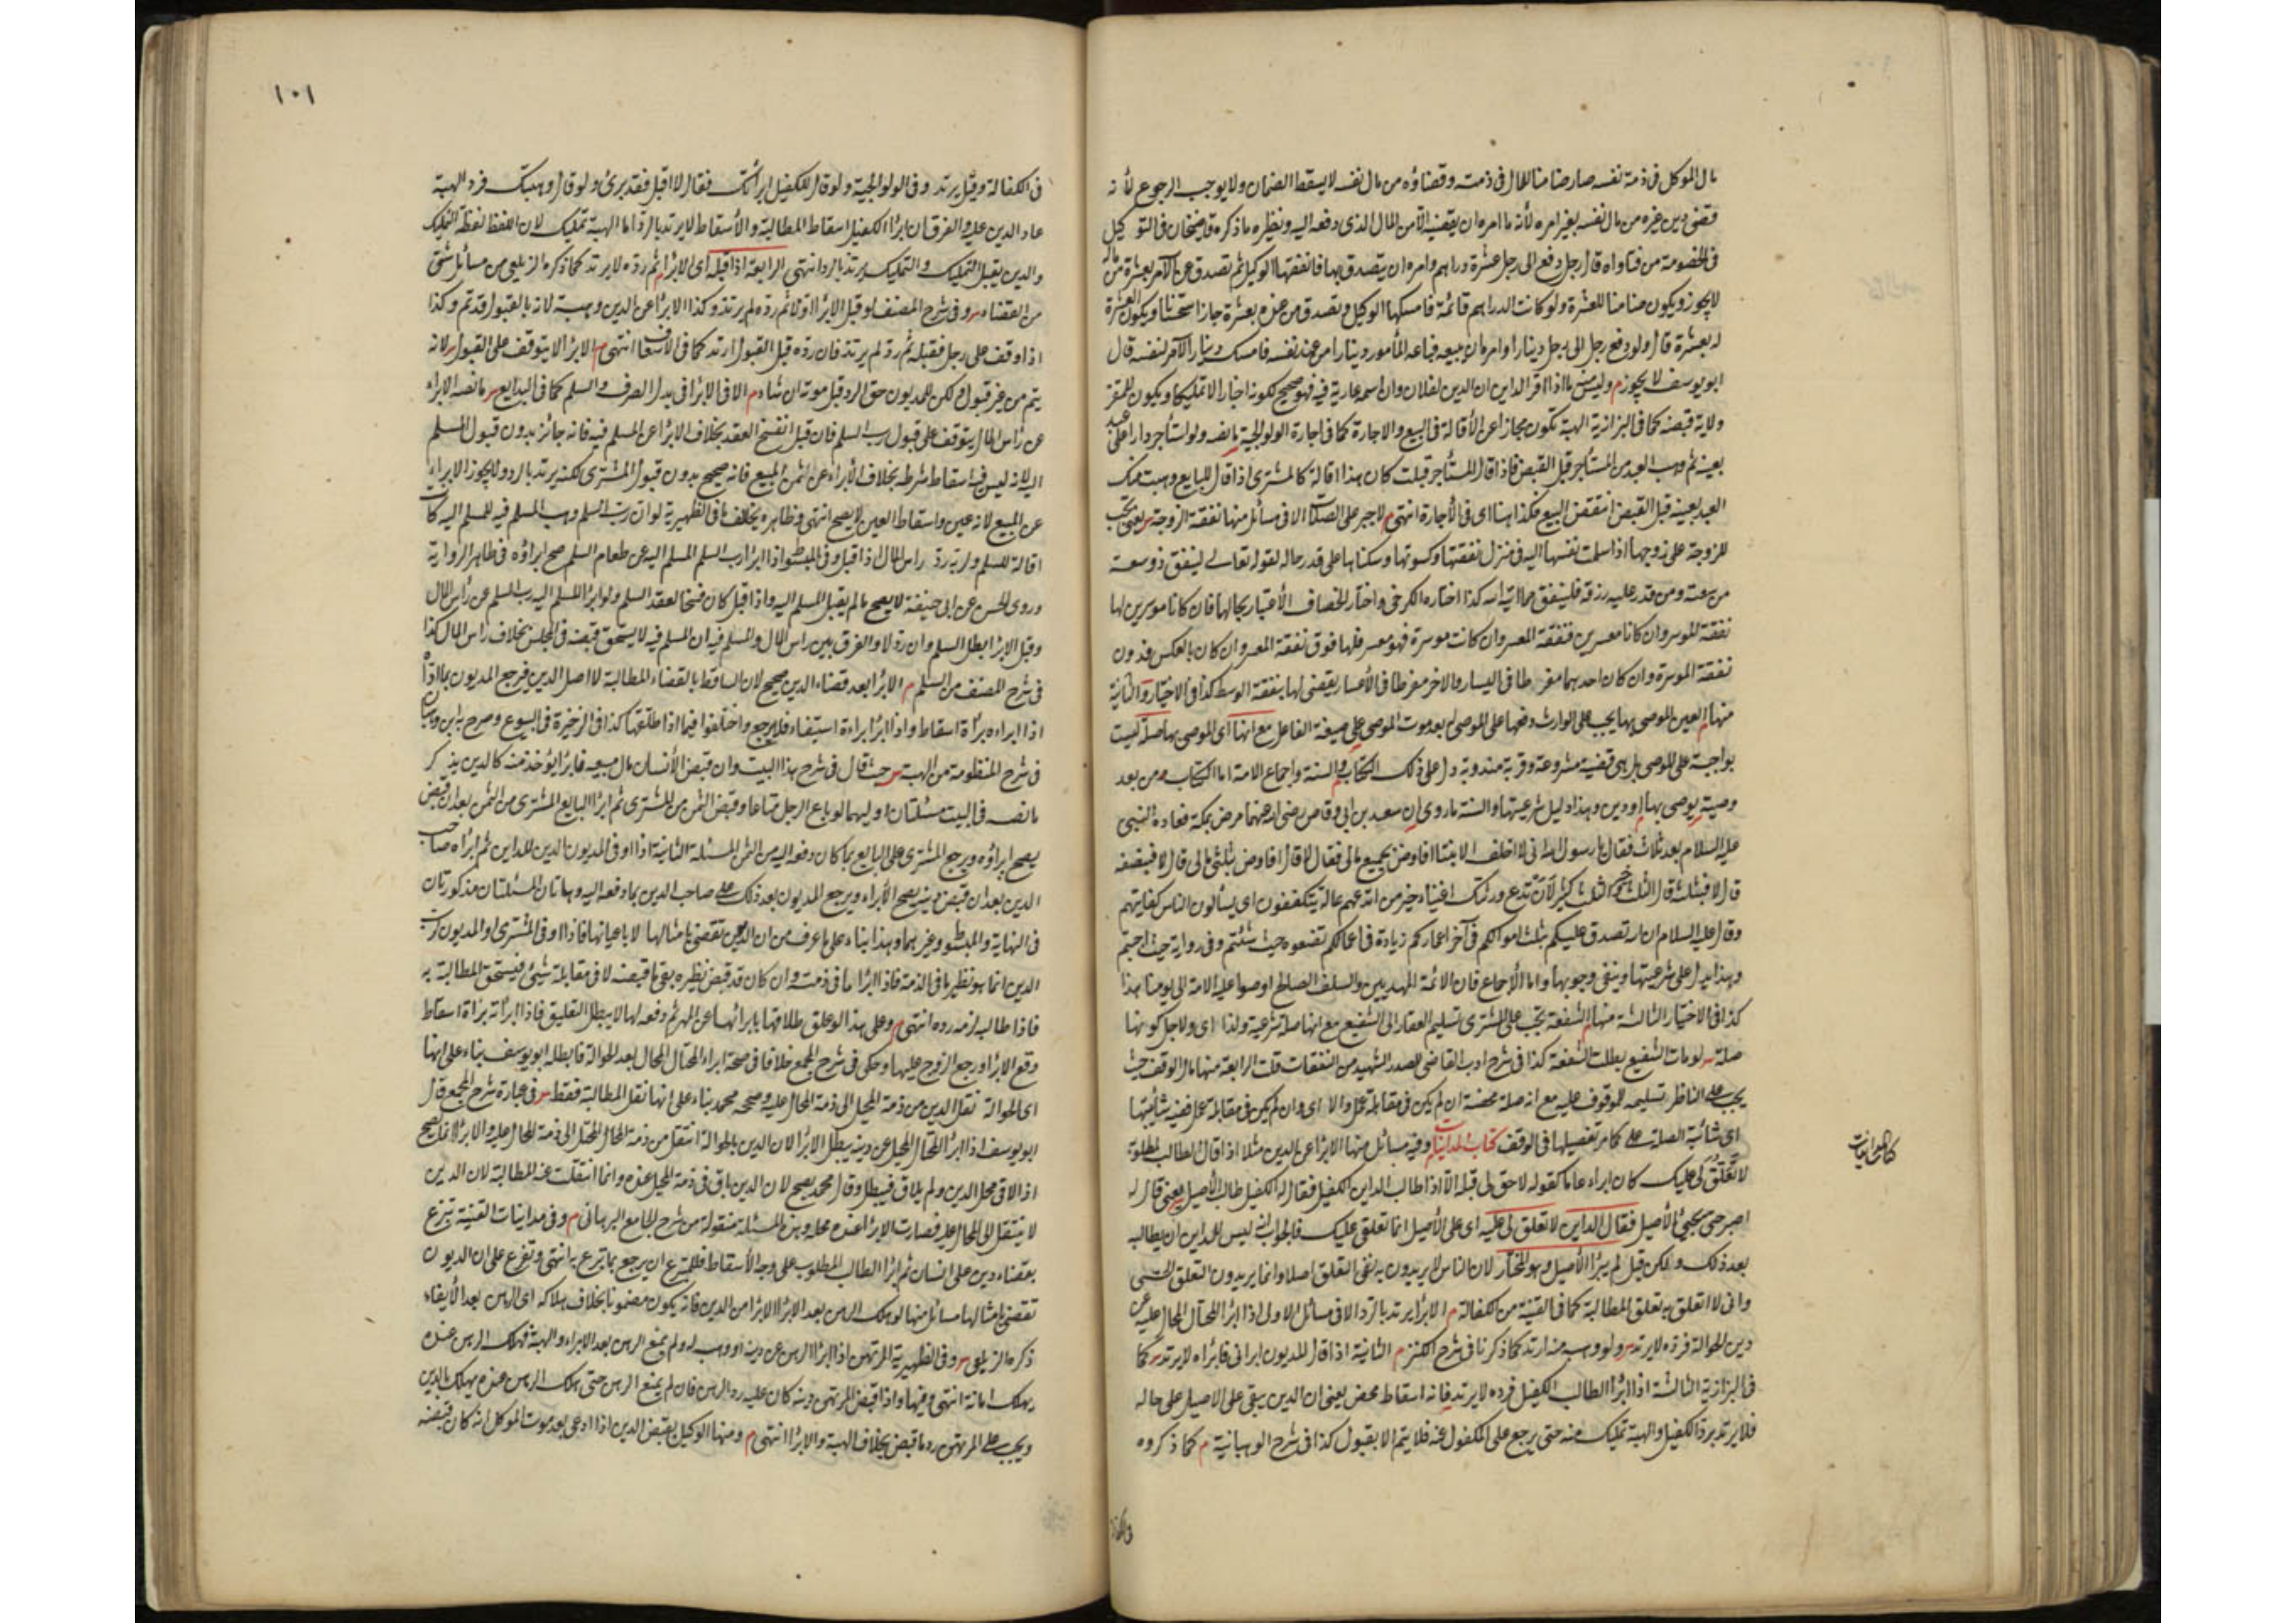 مال الموكل فى ذمة نفسه صار ضامنا للمال فى ذمته وقضاؤه من مال نفسه لا يسقط الضمان ولا يوجب الرجوع لأنه
قضى دين غيره من مال نفسه بغير امره لأنه ما امره ان يقضيه الا من المال الذى دفعه اليه ونظيره ما ذكره قاضيخان فى التوكيل
فى الخصومة من فتاواه قال رجل دفع الى رجل عشرة دراهم وامره ان يتصدق بها فانفقها الوكيل ثم تصدق عن الآمر بعشرة من ماله
لا يجوز ويكون ضامنا للعشرة ولو كانت الدراهم قائمة فامسكها الوكيل وتصدق من عنده بعشرة جاز استحسانا ويكون العشرة
له بعشرة قال ولو دفع رجل الى رجل دينارا وامره ان يبيعه فباعه المأمور دينارا من عند نفسه فامسك دينار الآمر لنفسه قال
ابو يوسف لا يجوز م وليس منه ما اذا اقر الداين ان الدين لفلان وان اسمه عارية فيه فهو صحيح لكونه اخبارا لا تمليكا ويكون للمقر
ولاية قبضه كما فى البزازية الهبة تكون مجازا عن الأقالة فى البيع والاجارة كما فى اجارة الولوالجية ما نصه ولو استأجر دارا على عبد
بعينه ثم وهب العبد من المستأجر قبل القبض فاذا قال المستأجر قبلت كان هذا اقالة كالمشترى اذا قال للبايع وهبت منك
العبد بعينه قبل القبض انتقض البيع فكذا هنا اى فى الأجارة انتهى م لا جبر على الصلات الا فى مسائل منها نفقة الزوجة س يعنى تجب
للزوجة على زوجها اذا سلمت نفسها اليه فى منزله نفقتها وكسوتها وسكناها على قدر حاله لقوله تعالى لينفق ذو سعة
من سعته ومن قدر عليه رزقه فلينفق مما اتيه الله كذا اختاره الكرخى واختار الخصاف الأعتبار بحالهما فان كانا موسرين لها
نفقة الموسر وان كانا معسرين فنفقة المعسر وان كانت موسرة فهو معسر فلها فوق نفقة المعسر وان كان بالعكس فدون
نفقة الموسرة وان كان احدهما مفرطا فى اليسار والاخر مفرطا فى الأعسار يقضى لها بنفقة الوسط كذا فى الاختيار والثانية
منها م العين الموصى بها يجب على الوارث دفعها على الموصى له بعد موت الموصى على صيغة الفاعل مع انها اى الموصى بها صلة ليست
بواجبة على الموصى بل هى قضية مشروعة وقربة مندوبة دل على ذلك الكتاب والسنة واجماع الامة اما الكتاب من بعد
وصية يوصى بها او دين وهذا دليل شرعيتها والسنة ما روى ان سعد بن ابى وقاص رضى الله عنهما مرض بمكة فعاده النبى
عليه السلام بعد ثلاث فقال يا رسول الله انى لا اخلف الا بنتا افاوصى بجميع مالى فقال لا قال افاوصى بثلثى مالى قال لا فبنصفه
قال لا فبثلثه قال الثلث والثلث كثير لأن تدع ورثتك اغنياء خير من ان تدعهم عالة يتكففون اى يسألون الناس كفايتهم
وقال عليه السلام ان الله تصدق عليكم بثلث اموالكم فى آخر اعماركم زيادة فى اعمالكم تضعوه حيث شئتم وفى رواية حيث احببتم
وهذا يدل على شرعيتها وينفى وجوبها واما الأجماع فان الائمة المهديين والسلف الصالح اوصوا عليه الامة الى يومنا هذا
كذا فى الاختيار الثالثة منها م الشفعة يجب على المشترى تسليم العقار الى الشفيع مع انها صلة شرعية ولذا اى ولاجل كونها
صلة س لو مات الشفيع بطلت الشفعة كذا فى شرح ادب القاضى للصدر الشهيد من النفقات قلت الرابعة منها مال الوقف حيث
يجب على الناظر تسليمه للموقوف عليه مع انه صلة محضة ان لم يكن فى مقابلة عمل والا اى وان لم يكن فى مقابلة عمل ففيه شائبتها
اى شائبة الصلة على كما مر تفصيلها فى الوقف كتاب المداينات وفيه مسائل منها الابراء عن الدين مثلا اذا قال الطالب لمطلوبه
لا تعلق لى عليك كان ابراء عاما كقوله لا حق لى قبله الا اذا طالب الداين الكفيل فقال له الكفيل طالب الأصيل يعنى قال له
اصبر حتى يجيئ الأصيل فقال الداين لا تعلق لى عليه اى على الأصيل انما تعلقى عليك فالجواب انه ليس للداين ان يطالب
بعد ذلك ولكن قيل لم يبرأ الأصيل وهو المختار لان الناس لا يريدون به نفى التعلق اصلا وانما يريدون التعلق الحسى
وانى لا اتعلق به تعلق المطالبة كما فى القنية من الكفالة م الابراء يرتد بالرد الا فى مسائل الاولى اذا ابرأ المحتال المحال عليه عن
دين الحوالة فرده لا يرتد س ولو وهب منه ارتد كما ذكرنا فى شرح الكنز م الثانية اذا قال المديون ابرأنى فابرأه لا يرتد س كما
فى البزازية الثالثة اذا ابرأ الطالب الكفيل فرده لا يرتد فانه اسقاط محض يعنى ان الدين يبقى على الاصيل على حاله
فلا يرتد برد الكفيل والهبة تمليك منه حتى يرجع على المكفول عنه فلا يتم الا بقبول كذا فى شرح الوهبانية م كما ذكروه
كتاب المداينات
فى الكفالة
١٠١
فى الكفالة وقيل يرتد وفى الولوالجية ولو قال للكفيل ابرأتك فقال لا اقبل فقد برئ ولو قال وهبتك فرد الهبة
عاد الدين عليه والفرق ان ابراء الكفيل اسقاط المطالبة والأسقاط لا يرتد بالرد اما الهبة تمليك لان اللفظ لفظة التمليك
والدين يقبل التمليك والتمليك يرتد بالرد انتهى الرابعة اذا قبله اى الابراء ثم رده لا يرتد كما ذكره الزيلعى من مسائل شتى
من القضاء س وفى شرح المصنف لو قبل الابراء اولا ثم رده لم يرتد وكذا الابراء عن الدين وهبته لانه بالقبول قد تم وكذا
اذا وقف على رجل فقبله ثم رد لم يرتد فان رده قبل القبول ارتد كما فى الأسعاف انتهى م الابراء لا يتوقف على القبول س لانه
يتم من غير قبول ولكن للمديون حق الرد قبل موته ان شاء م الا فى الابراء فى بدل الصرف والسلم كما فى البدايع س ما نصه الابراء
عن رأس المال يتوقف على قبول رب السلم فان قبل انفسخ العقد بخلاف الابراء عن المسلم فيه فانه جائز بدون قبول المسلم
اليه لانه ليس فيه اسقاط شرطه بخلاف الأبراء عن الثمن المبيع فانه صحيح بدون قبول المشترى لكنه يرتد بالرد ولا يجوز الابراء
عن المبيع لانه عين واسقاط العين لا يصح انتهى وظاهره يخالف ما فى الظهيرية لو ان رب السلم وهب المسلم فيه للمسلم اليه كانت
اقالة للسلم ولزمه رد راس المال اذا قبل وفى المبسوط اذا ابرأ رب السلم المسلم اليه عن طعام السلم صح ابراؤه فى ظاهر الرواية
وروى الحسن عن ابى حنيفة لا يصح ما لم يقبل المسلم اليه واذا قبل كان فسخا لعقد السلم ولو ابرأ المسلم اليه رب السلم عن رأس المال
وقبل الابراء بطل السلم وان رد لا والفرق بين راس المال والمسلم فيه ان المسلم فيه لا يستحق قبضه فى المجلس بخلاف راس المال كذا
فى شرح المصنف من السلم م الابراء بعد قضاء الدين صحيح لان الساقط بالقضاء المطالبة لا اصل الدين فيرجع المديون بما اداه
اذا ابراءه براءة اسقاط واذا ابرأ براءة استيفاء فلا يرجع واختلفوا فيما اذا طلقها كذا فى الذخيرة فى البيوع وصرح به ابن وهبان
فى شرح المنظومة من الهبة س حيث قال فى شرح هذا البيت وان قبض الأنسان مال مبيعه فابرأ يؤخذ منه كالدين يذكر
ما نصه فى البيت مسئلتان اوليهما لو باع الرجل متاعا وقبض الثمن من المشترى ثم ابرأ البايع المشترى من الثمن بعد ان قبض
يصح ابراؤه ويرجع المشترى على البايع بما كان دفعه اليه من الثمن المسئلة الثانية اذا اوفى المديون الدين للداين ثم ابرأه صاحب
الدين بعد ان قبض دينه يصح الأبراء ويرجع المديون بعد ذلك على صاحب الدين بما دفعه اليه وهاتان المسئلتان مذكورتان
فى النهاية والمبسوط وغيرهما وهذا بناء على ما عرف من ان الديون تقضى بامثالها لا باعيانها فاذا اوفى المشترى او المديون رب
الدين انما هو نظير ما فى الذمة فاذا ابرأ ما فى ذمته وان كان قد قبض نظيره بقى ما قبضه لا فى مقابلة شيئ فيستحق المطالبة به
فاذا طالبه لزمه رده انتهى م وعلى هذا لو علق طلاقها بابرائها عن المهر ثم دفعه لها لا يبطل التعليق فاذا ابرأته براءة اسقاط
وقع الابراء ورجع الزوج عليها وحكى فى شرح المجمع خلافا فى صحة ابراء المحتال المحال بعد الحوالة فابطله ابو يوسف بناء على انها
اى الحوالة نقل الدين من ذمة المحيل الى ذمة المحال عليه وصححه محمد بناء على انها نقل المطالبة فقط س فى عبارة شرح المجمع قال
ابو يوسف اذا ابرأ المحتال المحيل عن دينه يبطل الابراء لان الدين بالحوالة انتقل من ذمة المحيل الى ذمة المحال عليه والابراء انما يصح
اذا لاقى محل الدين ولم يلاق فيبطل وقال محمد يصح لان الدين باق فى ذمة المحيل عنده وانما انتقلت عنه المطالبة لان الدين
لا ينتقل الى المحال عليه فصارت الابراء عنده محله وهذه المسئلة منقولة من شرح الجامع البرهانى م وفى مداينات القنية تبرع
بقضاء دين على انسان ثم ابرأ الطالب المطلوب على وجه الأسقاط فللمتبرع ان يرجع بما تبرع به انتهى وتفرع على ان الديون
تقضى بامثالها مسائل منها لو هلك الرهن بعد الابراء من الدين فانه يكون مضمونا بخلاف هلاكه اى الرهن بعد الأيفاء
ذكره الزيلعى س وفى الظهيرية المرتهن اذا ابرأ الراهن عن دينه او وهبه له ولم يمنع الرهن بعد الابراء والهبة فهلك الرهن عنده
يهلك امانة انتهى وفيها واذا قبض المرتهن دينه كان عليه رد الرهن فان لم يمنع الرهن حتى هلك الرهن عنده يهلك بالدين
ويجب على المرتهن رد ما قبض بخلاف الهبة والابراء انتهى م ومنها الوكيل بقبض الدين اذا ادعى بعد موت الموكل انه كان قبضه